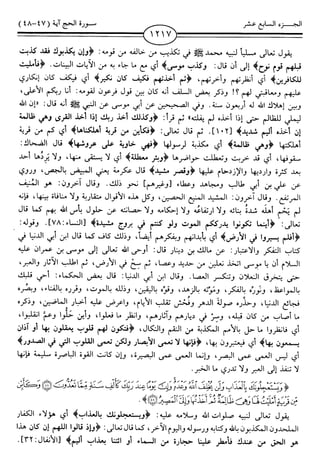 الجـــزء السابع عشر
١٢١٧
سـورة الحج آية (٤٧-٤٨)
يقول تعالى مسلياً لنبيه محمد ﷺ في تكذيب من خالفه من قومه: ﴿وإن يكذبوك فقد كذبت
قبلهم قوم نوح﴾ إلى أن قال: ﴿وكذب موسى﴾ أي مع ما جاء به من الآيات البينات. ﴿فأمليت
للكافرين﴾ أي أنظرتهم وأخرتهم، ﴿ثم أخذتهم فكيف كان نكير﴾ أي فكيف كان إنكاري
عليهم ومعاقبتي لهم؟! وذكر بعض السلف أنه كان بين قول فرعون لقومه: أنا ربكم الأعلى،
وبين إهلاك الله له أربعون سنة. وفي الصحيحين عن أبي موسى عن النبي ﷺ أنه قال: «إن الله
ليملي للظالم حتى إذا أخذه لم يفلته» ثم قرأ: ﴿وكذلك أخذ ربك إذا أخذ القرى وهي ظالمة
إن أخذه أليم شديد﴾ [١٠٢]. ثم قال تعالى: ﴿فكأين من قرية أهلكناها﴾ أي كم من قرية
أهلكتها ﴿وهي ظالمة﴾ أي مكذبة لرسولها ﴿فهي خاوية على عروشها﴾ قال الضحاك:
سقوفها، أي قد خربت وتعطلت حواضرها ﴿وبئر معطلة﴾ أي لا يستقى منها، ولا يردها أحد
بعد كثرة وارديها والازدحام عليها ﴿وقصر مشيد﴾ قال عكرمة يعني المبيض بالجص، وروي
عن علي بن أبي طالب ومجاهد وعطاء [وغيرهم] نحو ذلك. وقال آخرون: هو المُنيف
المرتفع. وقال آخرون: المشيد المنيع الحصين، وكل هذه الأقوال متقاربة ولا منافاة بينها، فإنه
لم يَحْم أهله شدةُ بنائه ولا ارتفاعُه ولا إحكامه ولا حصانته عن حلول بأس الله بهم كما قال
تعالى: ﴿أينما تكونوا يدرككم الموت ولو كنتم في بروج مشيدة﴾ [النساء:٧٨]. وقوله:
﴿أفلم يسيروا في الأرض﴾ أي بأبدانهم وبفكرهم أيضاً، وذلك كاف كما قال ابن أبي الدنيا في
كتاب التفكر والاعتبار: عن مالك بن دينار قال: أوحى الله تعالى إلى موسى بن عمران عليه
السلام أن يا موسى اتخذ نعلين من حديد وعصا، ثم سِحْ في الأرض، ثم اطلب الآثار والعبر،
حتى يتخرق النعلان وتنكسر العصا. وقال ابن أبي الدنيا: قال بعض الحكماء: أحي قلبك
بالمواعظ، ونوِّرْه بالفكر، وموّتْه بالزهد، وقوِّه باليقين، وذلله بالموت، وقرره بالفناء، وبصِّره
فجائع الدنيا، وحذِّره صولةَ الدهر وفُحْش تقلب الأيام، واعرض عليه أخبار الماضين، وذكره
ما أصاب من كان قبله، وسِرْ في ديارهم وآثارهم، وانظر ما فعلوا، وأين حَلّوا وعمَّ انقلبوا،
أي فانظروا ما حل بالأمم المكذبة من النقم والنكال، ﴿فتكون لهم قلوب يعقلون بها أو آذان
يسمعون بها﴾ أي فيعتبرون بها، ﴿فإنها لا تعمى الأبصار ولكن تعمى القلوب التي في الصدور﴾
أي ليس العمى عمى البصر، وإنما العمى عمى البصيرة، وإن كانت القوة الباصرة سليمة فإنها
لا تنفذ إلى العبر ولا تدري ما الخبر.
وَيَسْتَعْجِلُونَكَ بِالْعَذَابِ وَلَن يُخْلِفَ اللَّهُ وَعْدَهُ وَإِنَّ يَوْمًا عِندَ رَبِّكَ كَأَلْفِ سَنَةٍ مِّمَّا تَعُدُّونَ
وَكَأَيِّن مِّن قَرْيَةٍ أَمْلَيْتُ لَهَا وَهِيَ ظَالِمَةٌ ثُمَّ أَخَذْتُهَا وَإِلَيَّ الْمَصِيرُ
يقول تعالى لنبيه صلوات الله وسلامه عليه: ﴿ويستعجلونك بالعذاب﴾ أي هؤلاء الكفار
الملحدون المكذبون بالله وكتابه ورسوله واليوم الآخر، كما قال تعالى: ﴿وإذ قالوا اللهم إن كان هذا
هو الحق من عندك فأمطر علينا حجارة من السماء أو ائتنا بعذاب أليم﴾ [الأنفال:٣٢].